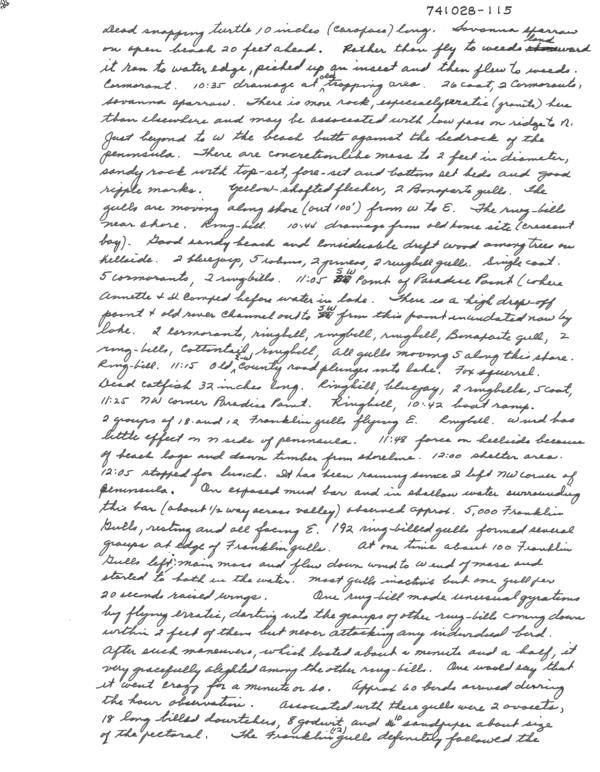 741028-115
Dead snapping turtle 10 inches (carapace) long. Savanna sparrow
on open beach 20 feet ahead. Rather than fly to weeds landward
it ran to water edge, picked up an insect and then flew to weeds.
Cormorant. 10:35 drainage at old trapping area. 26 coot, 2 Cormorants,
savanna sparrow. There is more rock, especially erratic (granite) here
than elsewhere and may be associated with low pass on ridge to N.
Just beyond to W the beach butts against the bedrock of the
peninsula. There are concretion like mass to 2 feet in diameter,
sandy rock with top-set, fore-set and bottom set beds and good
ripple marks. Yellow-shafted flicker, 2 Bonaparte gulls. The
gulls are moving along shore (out 100') from W to E. The ring-bills
near shore. Ring-bill. 10:44 drainage from old home site (crescent
bay). Good sandy beach and considerable drift wood among trees on
hillside. 2 bluejay, 5 robins, 2 juncos, 2 ringbill gulls. Single coot.
5 cormorants, 2 ringbills. 11:05 SW Point of Paradise Point (where
Annette & I camped before water in lake. There is a high drop-off
point & old river channel out to SW from this point inundated now by
lake. 2 cormorants, ringbill, ringbill, ringbill, Bonaparte gull, 2
ring-bills, Cottontail, ringbill, all gulls moving S along this shore.
Ring-bill. 11:15 Old E-W County road plunges into lake. Fox squirrel.
Dead catfish 32 inches long. Ringbill, bluejay, 2 ringbills, 5 coot,
11:25 NW corner Paradise Point. Ringbill, 10:42 boat ramp.
2 groups of 18 and 12 Franklin gulls flying E. Ringbill. Wind has
little effect on N side of peninsula. 11:48 force on hillside because
of beach logs and down timber from shoreline. 12:00 shelter area.
12:05 stopped for lunch. It has been raining since I left NW corner of
peninsula. On exposed mud bar and in shallow water surrounding
this bar (about 1/2 way across valley) observed approx. 5,000 Franklin
Gulls, resting and all facing E. 192 ring-billed gulls formed several
groups at edge of Franklin gulls. At one time about 100 Franklin
Gulls left main mass and flew down wind to W end of mass and
started to bath in the water. Most gulls inactive but one gull per
20 seconds raised wings. One ring-bill made unusual gyrations
by flying erratic, darting into the groups of other ring-bills coming down
within 2 feet of them but never attacking any individual bird.
After such maneuvers, which lasted about a minute and a half, it
very gracefully alighted among the other ring-bills. One would say that
it went crazy for a minute or so. Approx 60 birds arrived during
the hour observation. Associated with these gulls were 2 avocets,
18 long billed dowitchers, 8 godwit, and 10 sandpiper about size
of the pectoral. The Franklin (12) gulls definitely followed the